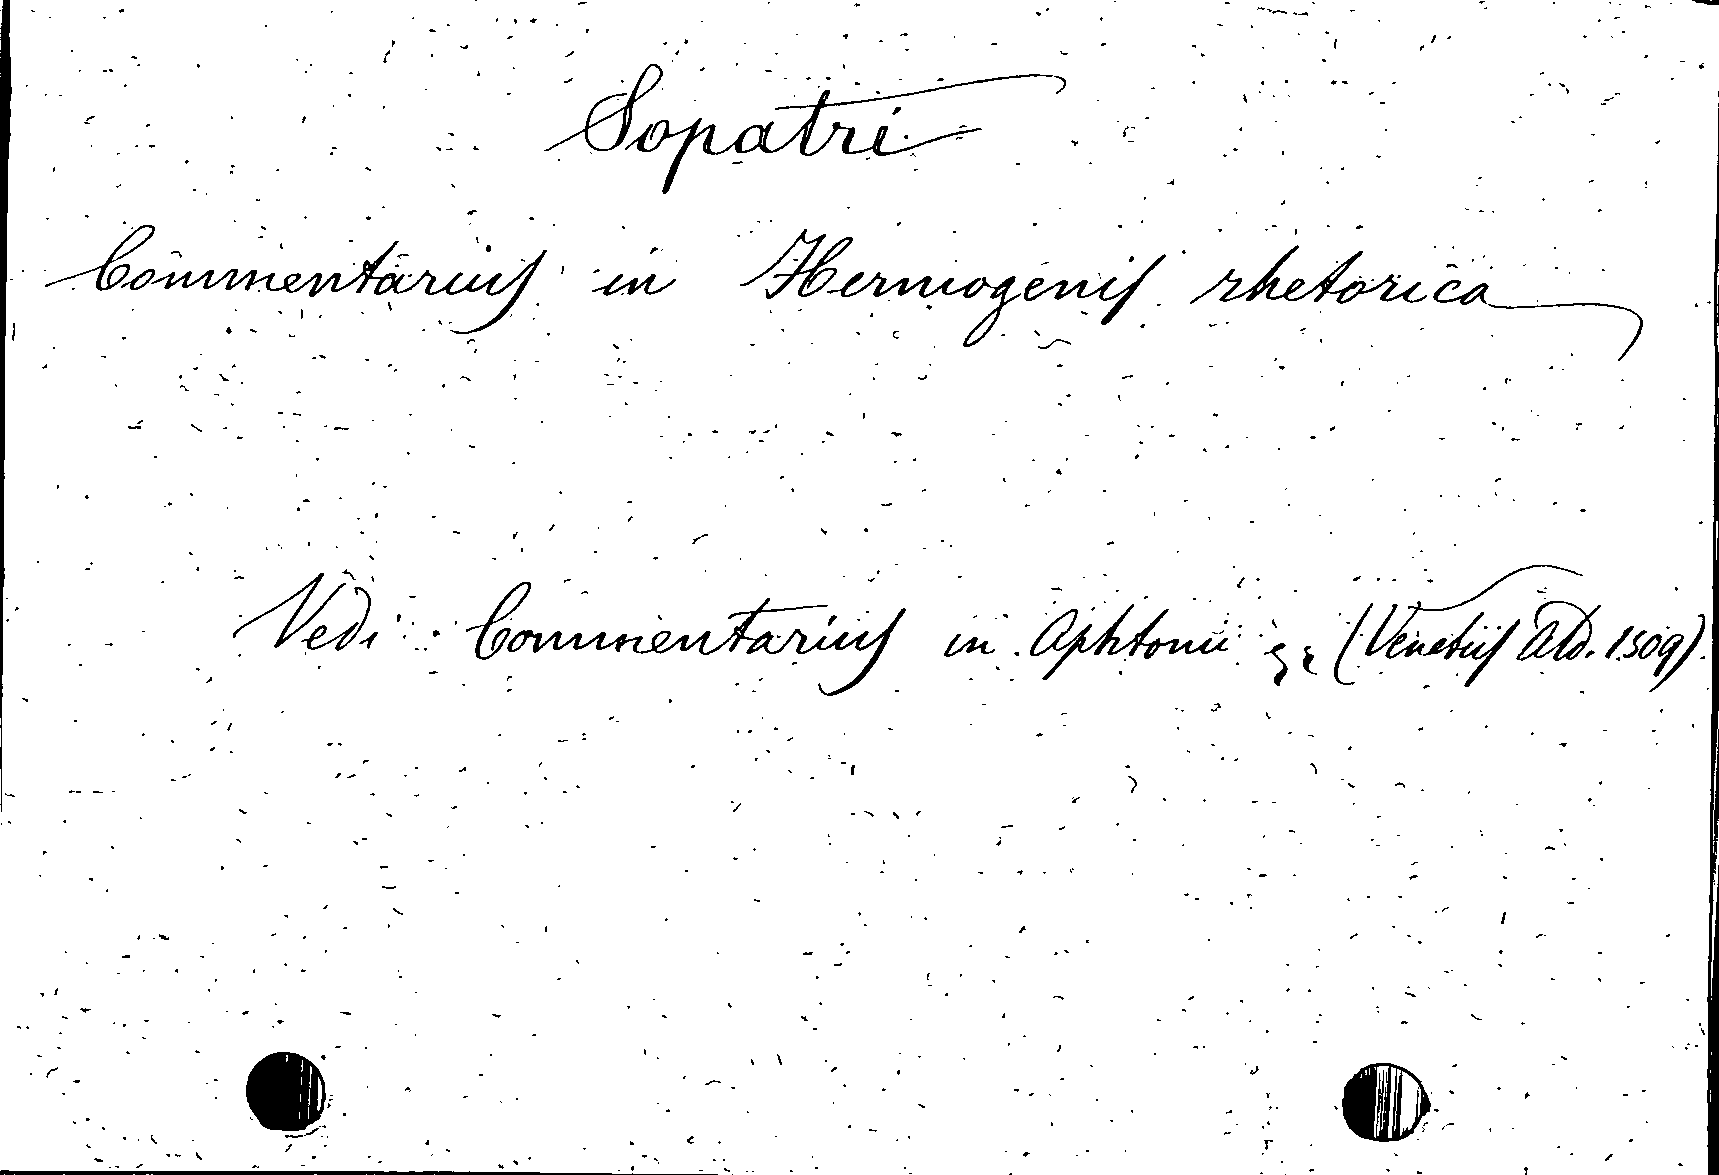 Sopatri
Commentarius in Hermogenis rhetorica
Vedi: Commentarius in Aphtonii (Venetiis Ald. 1509).